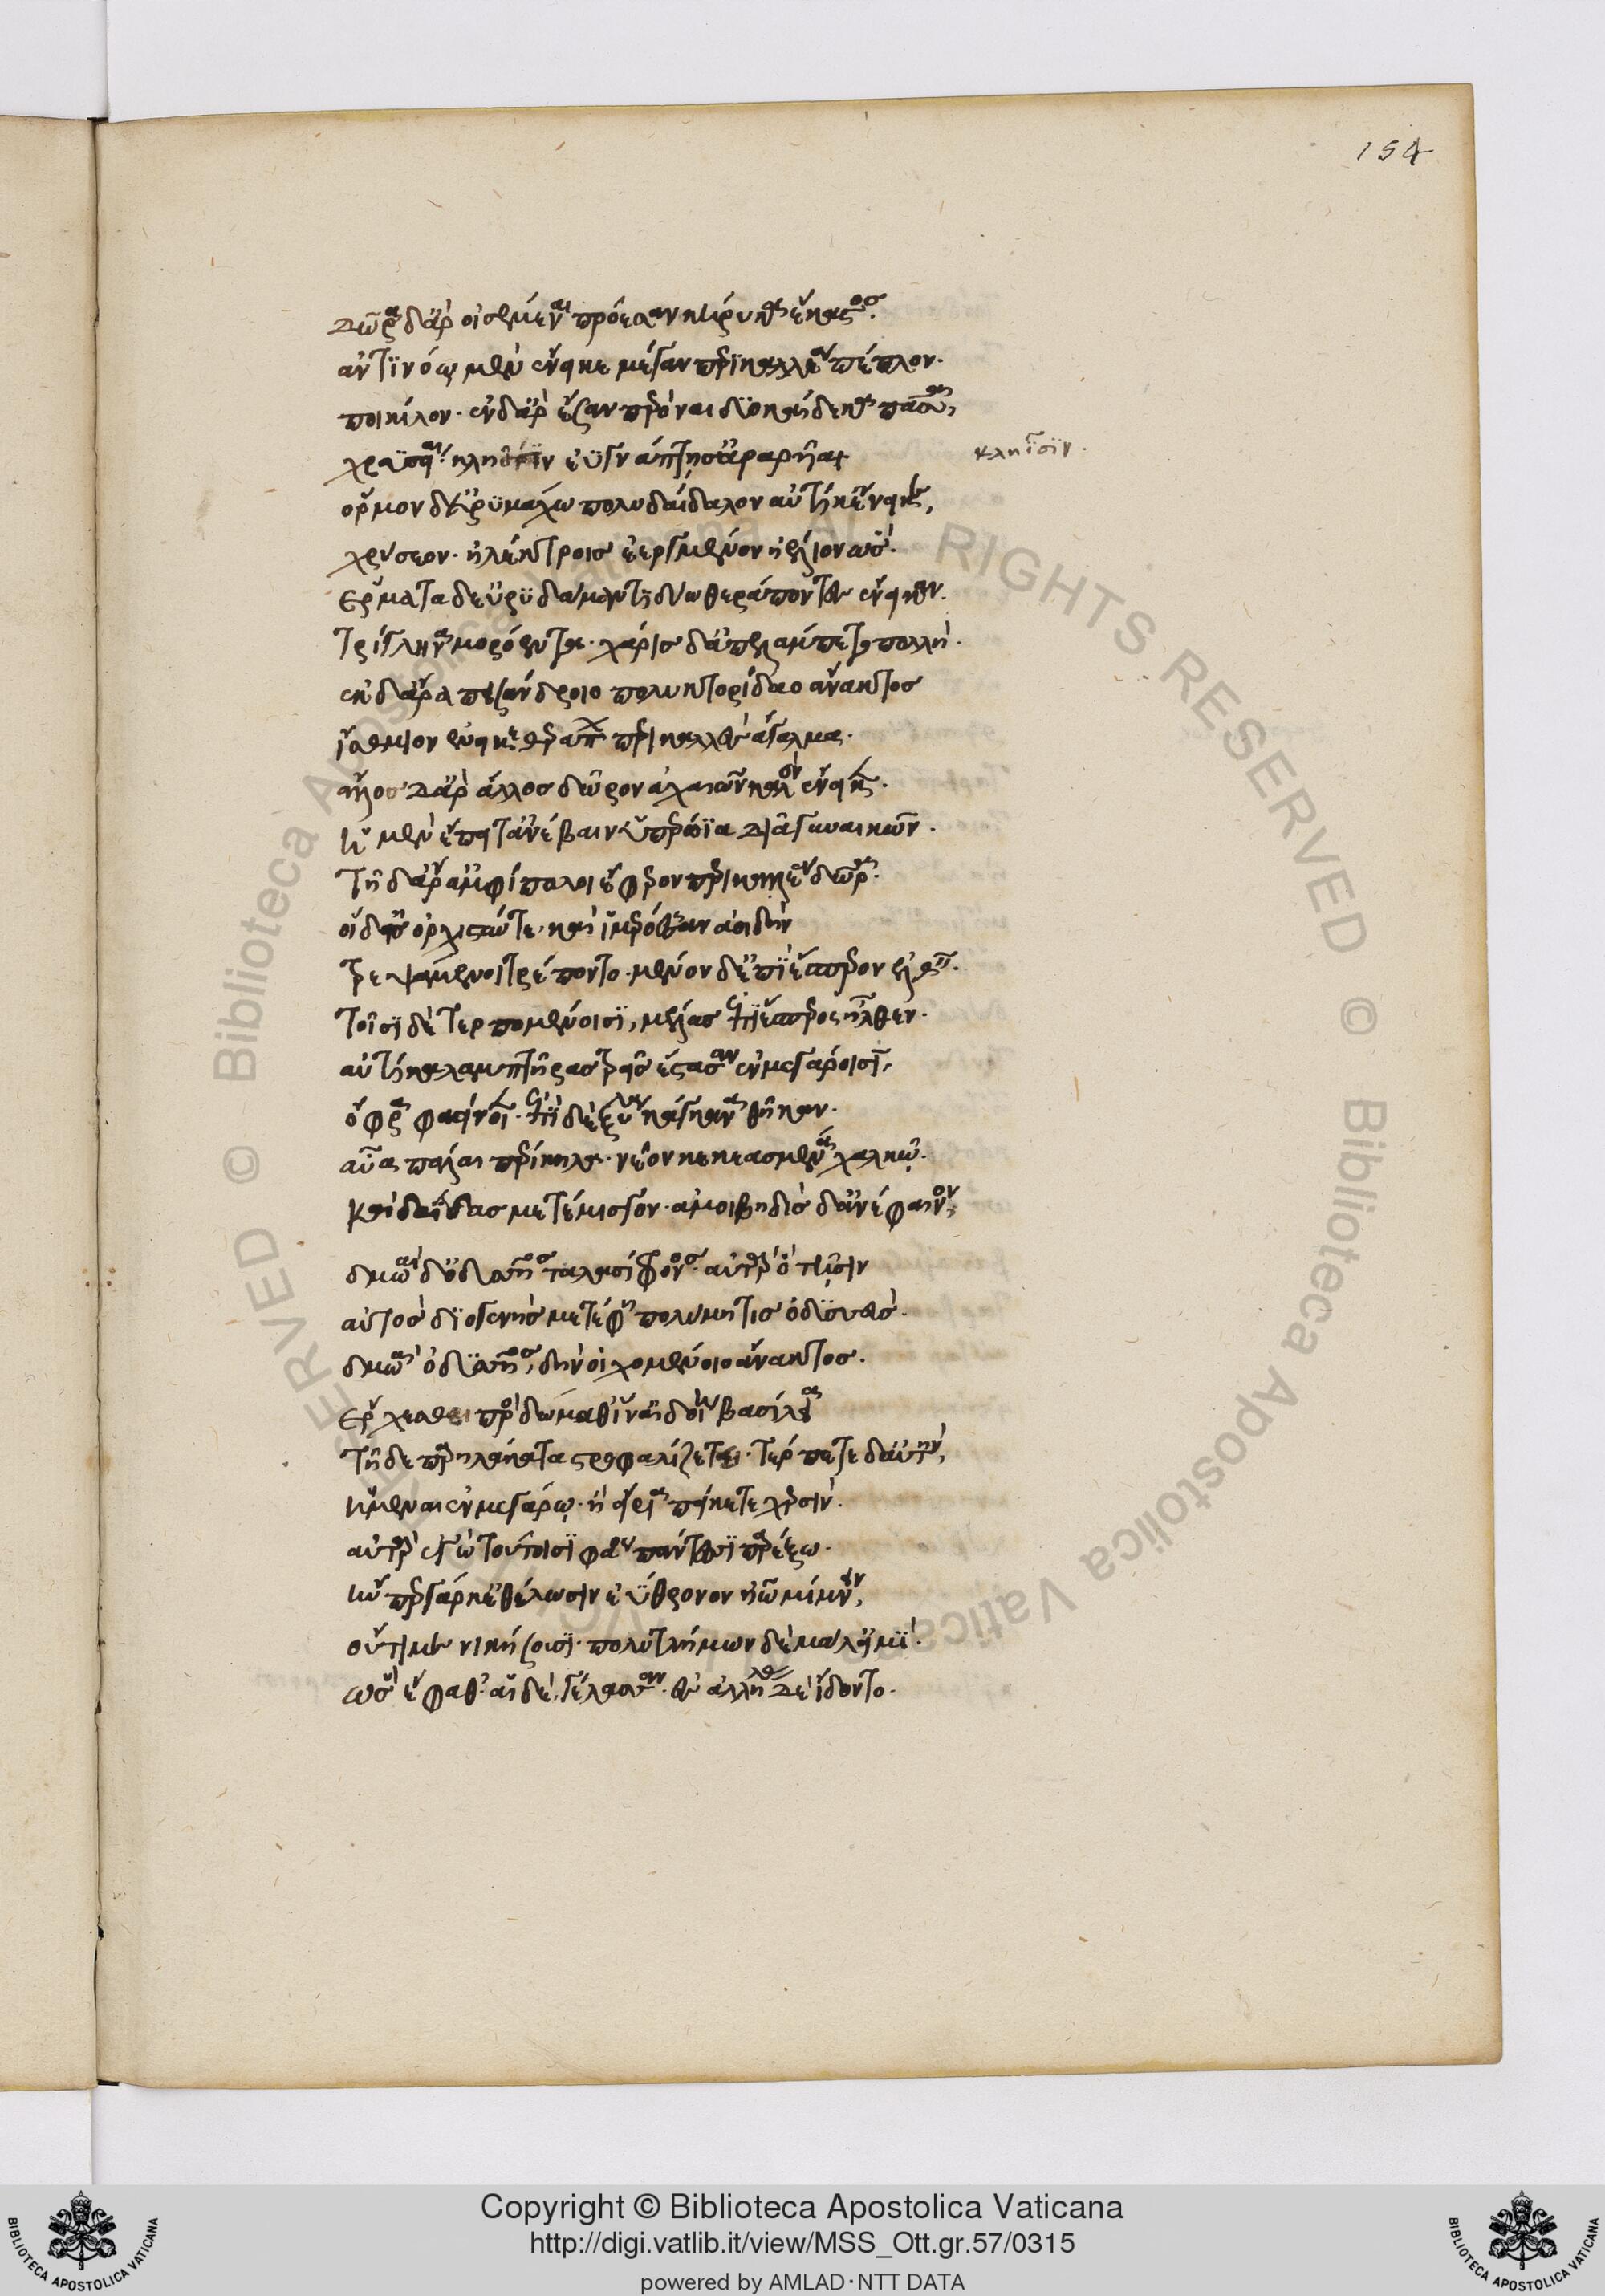 154
δῶρα δ' ἄρ' οἰσέμεναι πρόεσαν κήρυκα ἕκαστος.
ἀντινόω μὲν ἔνεικε μέγαν περικαλλέα πέπλον.
ποικίλον. ἐν δ' ἄρ' ἔσαν περόναι δυοκαίδεκα πᾶσαι,
χρύσειαι κληῖσιν ἐϋγνάπτης ἀραρυῖαι
κληῖσϊν.
ὅρμον δ' εὐρυμάχω πολυδαίδαλον αὐτίκ' ἔνεικε,
χρύσεον. ἠλέκτροισ ἐεργμένον ἠέλιον ὥς.
ἕρματα δ' εὐρυδάμαντι δύω θεράποντες ἔνεικαν.
τρίγληνα μορόεντα. χάρισ δ' ἀπελάμπετο πολλή.
ἐκ δ' ἄρα πεισάνδροιο πολυκτορίδαο ἄνακτος
ἴσθμιον ἔνεικε θεράπων περικαλλὲς ἄγαλμα.
ἄλλος δ' ἄρ' ἄλλος δῶρον ἀχαιῶν καλὸν ἔνεικεν.
ἡ μὲν ἔπειτ' ἀνέβαιν' ὑπερώϊα δῖα γυναικῶν.
τῇ δ' ἄρ' ἀμφίπολοι ἔφερον περικαλλέα δῶρα.
οἱ δ' εἰς ὀρχιστύν τε, καὶ ἱμερόεσσαν ἀοιδήν
τρεψάμενοι τέρποντο. μένον δ' ἐπὶ ἕσπερον ἐλθεῖν.
τοῖσι δὲ τερπομένοισι, μέλας ἐπὶ ἕσπερος ἦλθεν.
αὐτίκα λαμπτῆρας τρεῖς ἔστασαν ἐν μεγάροισι,
ὄφρα φαείνοιεν. ἐπὶ δὲ ξύλα κάγκανα θῆκαν.
αὖα πάλαι περίκηλα. νέον κεκεασμένα χαλκῷ.
καὶ δαΐδας μετέμισγον. ἀμοιβηδὶς δ' ἀνέφαινον,
δμωαὶ δ' ὀδυσσῆος ταλασίφρονος. αὐτὰρ ὁ τῇσιν
αὐτὸς διογενὴς μετέφη πολύμητις ὀδυσσεύς.
δμωαὶ ὀδυσσῆος, δὴν οἰχομένοιο ἄνακτος.
ἔρχεσθε πρὸς δώμαθ' ἵν' αἰδοίη βασίλεια
τῇ δὲ παρ' ἠλάκατα στροφαλίζετε. τέρπετε δ' αὐτήν,
ἥμεναι ἐν μεγάρω. ἢ εἴρια πείκετε χερσίν.
αὐτὰρ ἐγὼ τούτοισι φάος πάντεσσι παρέξω.
ἤν περ γάρ κ' ἐθέλωσιν ἐΰθρονον ἠῶ μίμνειν,
οὔτι με νικήσουσι. πολυτλήμων δὲ μάλ' εἰμί.
ὣς ἔφαθ'. αἱ δὲ γέλασσαν. ἐς ἀλλήλας δὲ ἴδοντο.
Copyright © Biblioteca Apostolica Vaticana
http://digi.vatlib.it/view/MSS_Ott.gr.57/0315
powered by AMLAD·NTT DATA